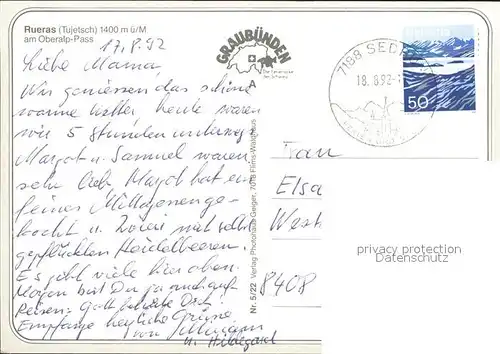 Rueras (Tujetsch) 1400 m ü/M
am Oberalp-Pass
17.8.92
Liebe Mama,
Wir geniessen das schöne
warme Wetter, heute waren
wir 5 Stunden unterwegs
Margot u. Samuel waren
sehr lieb. Margot hat ein
feines Mittagessen ge-
kocht u. Zvieri mit selbst
gepflückten Heidelbeeren.
Es gibt viele hier oben.
Morgen bist Du ja auch auf
Reisen. Gott behüte Dich!
Empfange herzliche Grüsse
von
u. Hildegard
GRAUBÜNDEN
Die Ferienecke
der Schweiz
A
Nr. 5/22 Verlag Photohaus Geiger, 7018 Flims-Waldhaus
7188 SED
18.8.92
HELVETIA
50
Frau
Elsa
West
8408
privacy protection
Datenschutz